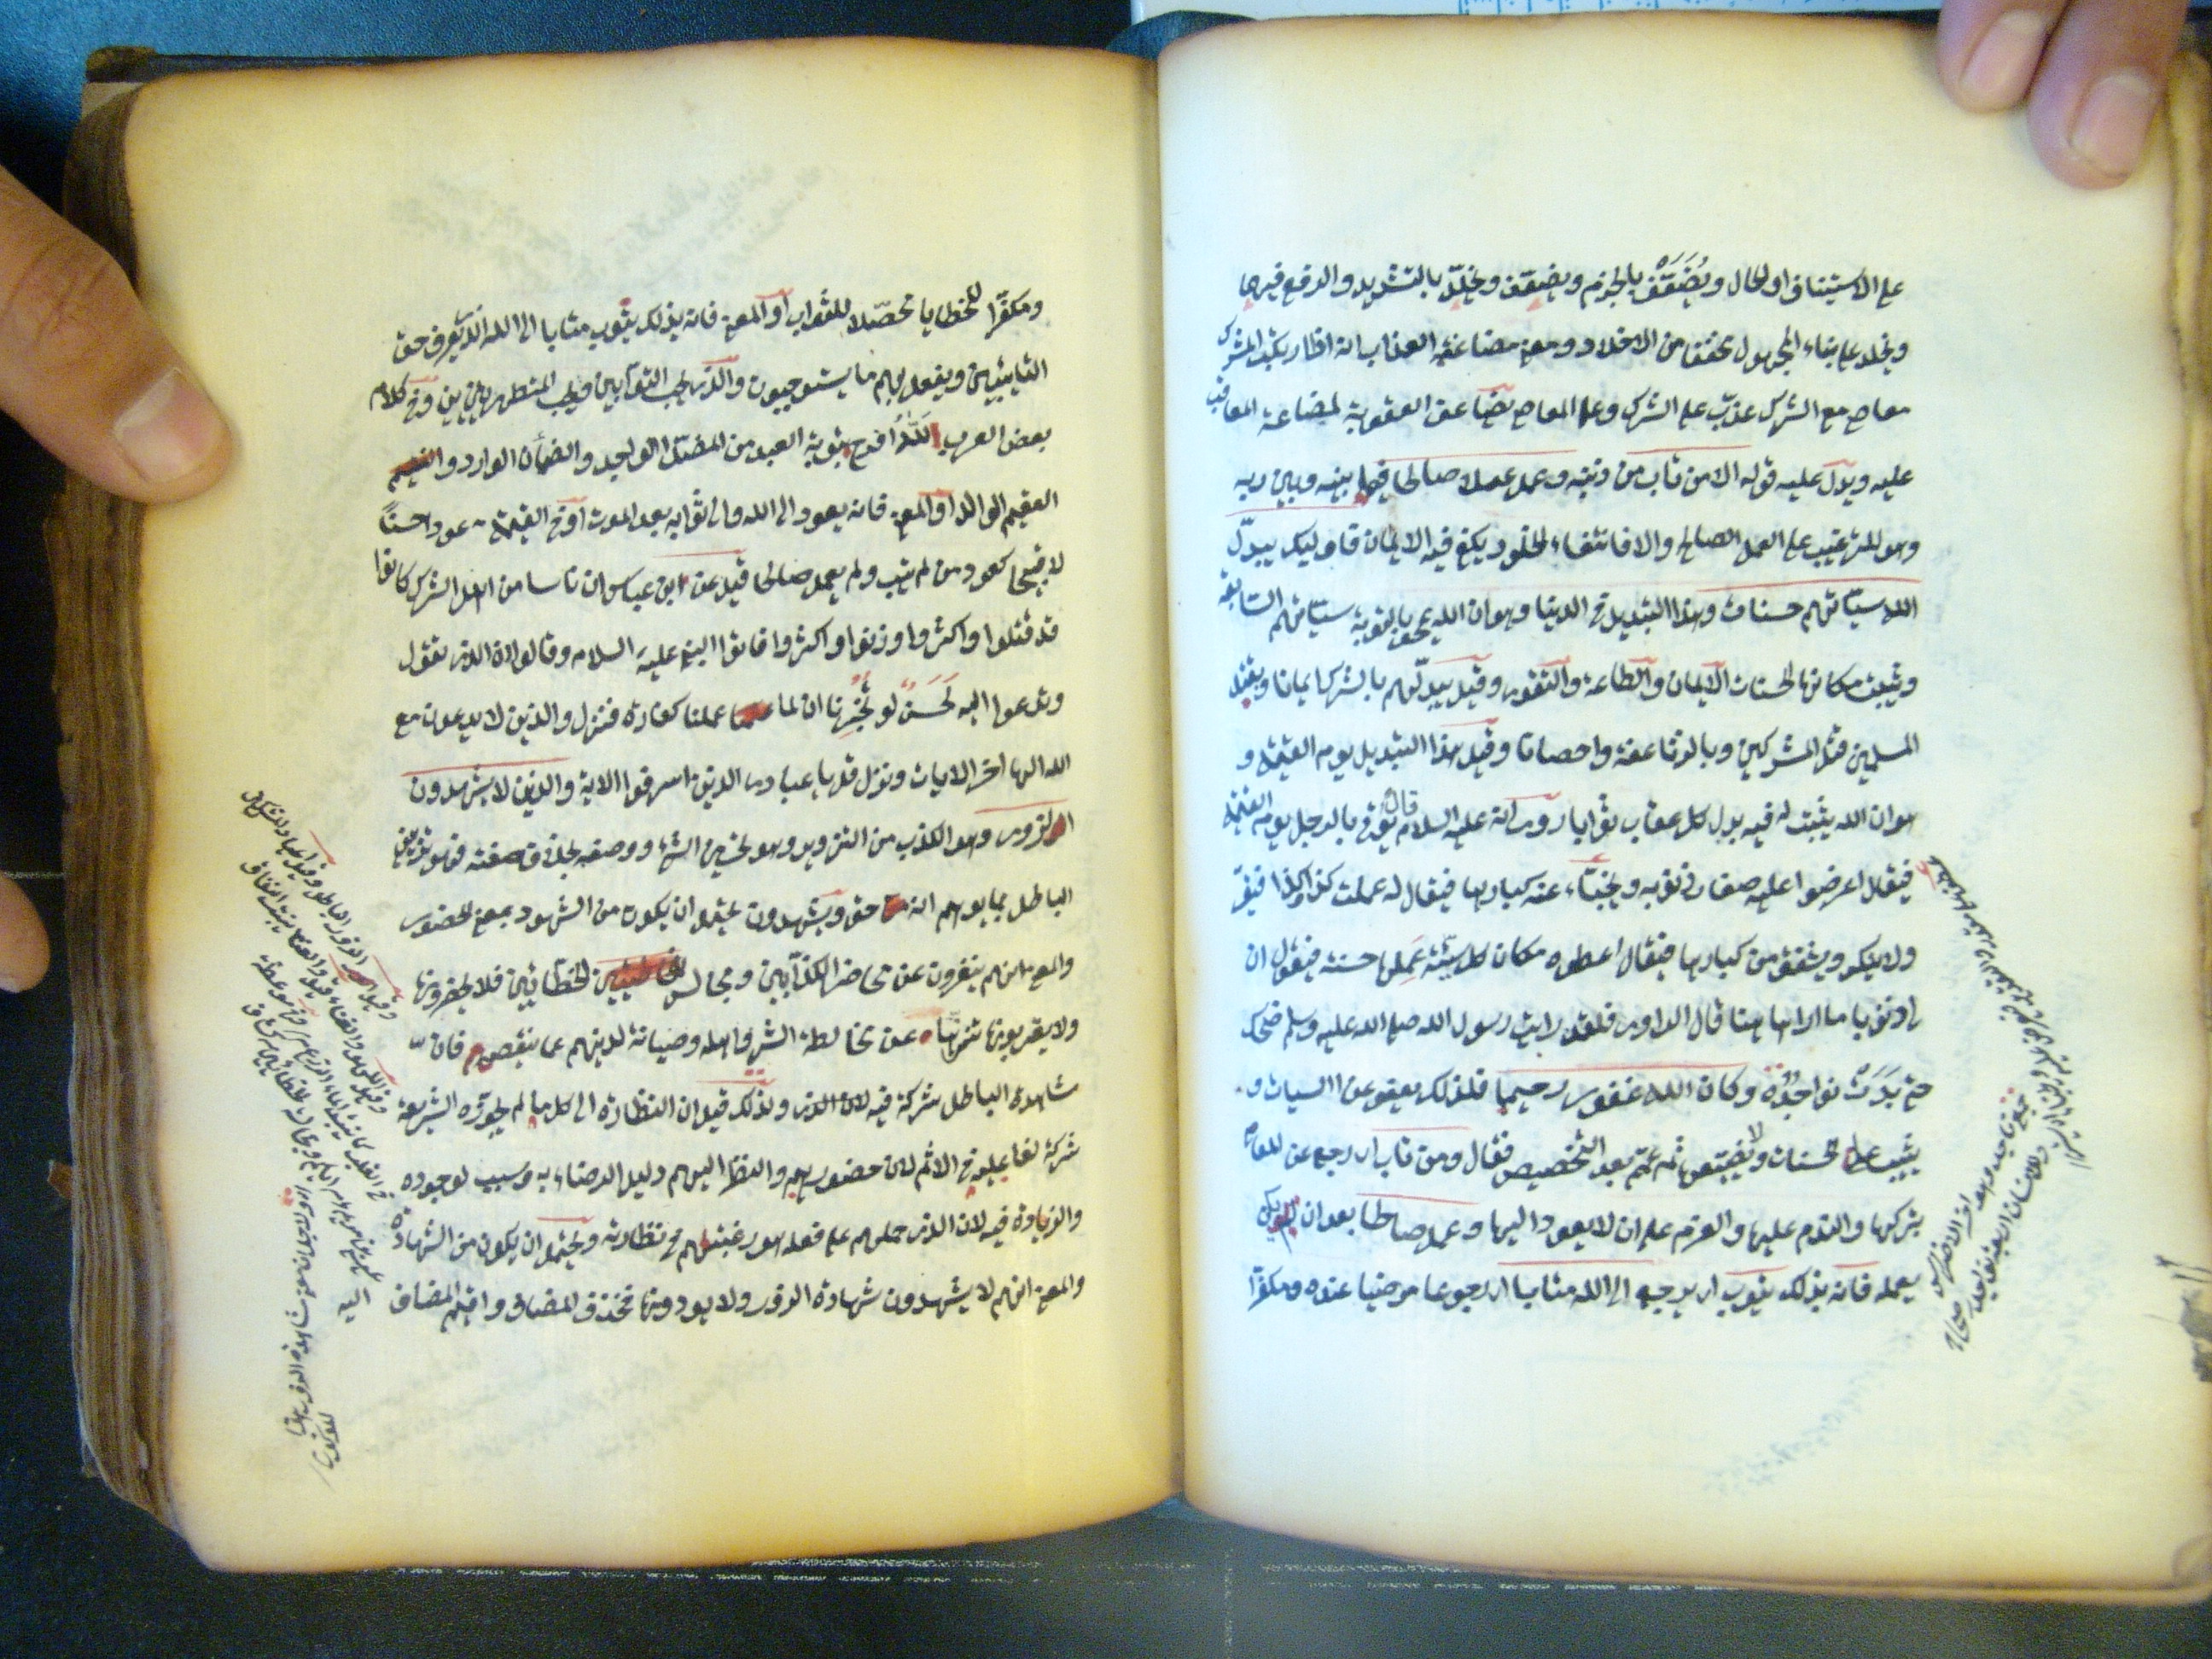 على الاستيناف او الحال ويُضَعَّف بالجزم ويضعف ويخلّد بالتشديد والرفع فيهما
ويخلد على بناء المجهول مخففا من الاخلاد ومعنى مضاعفة العذاب انه اذا ارتكب المشرك
معاصى مع الشرك عذّب على الشرك وعلى المعاصى تضاعف العقوبة لمضاعة المعاقب
عليه ويدل عليه قوله الا من تاب من ذنبه وعمل عملا صالحا فيما بينه وبين ربه
وهو للترغيب على العمل الصالح والا فانتفاء الخلود يكفى فيه الايمان فاوليك يبدل
الله سيّاتهم حسنات وهذا التبديل فى الدنيا وهو ان الله يمحق بالتوبة سيّاتهم السابقة
ويثبت مكانها الحسنات الايمان والطاعة والتقوى وقيل يبدّلهم بالشرك ايمانا وبقتل
المسلمين قتل المشركين وبالزنا عفة واحصانا وقيل هذا التبديل يوم القيمة و
هو ان الله يثبت له فيه بدل كل عقاب ثوابا روى انه عليه السلام قال يؤتى بالرجل يوم القيمة
فيقال اعرضوا عليه صغار ذنوبه ويخبّاء عنه كبارها فيقال له عملت كذا وكذا فيقرّ
ولا ينكر ويشفق من كبارها فيقال اعطوه مكان كل سيّئة عَمِلها حسنة فيقول ان
لى ذنوبا ما اراها هنا قال الراوى فلقد رايت رسول الله صلى الله عليه وسلم ضحك
حتى بَدَتْ نواجذُه وكان الله غفورا رحيما فلذلك يعفو عن السيات و
يثيب على الحسنات ولا يضيّعها ثم عمّم بعد التخصيص فقال ومن تاب اى رجع عن المعاصى
بتركها والندم عليها والعزم على ان لا يعود اليها وعمل صالحا بعد ان لم يكن
يعمله فانه بذلك يتوب اى يرجع الى الله متابا اى رجوعا مرضيا عنده ومكفّرا
ومكفّرا للخطايا محصّلا للثواب او المعنى فانه بذلك يتوب متابا الى الله الذى يعرف حق
التايبين ويفعل بهم ما يستوجبون والذى يحب التوّابين ويحب المتطهرين وفى كلام
بعض العرب اللّٰهُ افرح بتوبة العبد من المضلّ الواجد والضمأن الوارد و
العقيم الوالد او المعنى فانه يعود الى الله والى ثوابه بعد الموت او فى القيمة عودا حسنًا
لا قبيحا كعود من لم يتب ولم يعمل صالحا قيل عن ابن عباس ان ناسا من اهل الشرك كانوا
قد قتلوا واكثروا وزنوا واكثروا فاتوا النبى عليه السلام وقالوا ان الذى تقول
وتدعوا اليه لَحَسَنٌ لو تُخْبِرُنا ان لما عملنا كفارة فنزل والذين لا يدعون مع
الله الها اخر الايات ونزل قل يا عبادى الذين اسرفوا الاية والذين لا يشهدون
الزور وهو الكذب من التزوير وهو تحسين الشئ ووصفه بخلاف صفته فهو تزيين
الباطل بما يوهم انه حق ويشهدون يحتمل ان يكون من الشهود بمعنى الحضور
والمعنى انهم ينفرون عن محاضر الكذّابين ومجالس الخطّائين فلا يحضرونها
ولا يقربونها تنزّها عن مخالطة الشر واهله وصيانة لدينهم عما ينقصه فانّ
مشاهدة الباطل شركة فيه لان الذى ولذلك قيل ان النظارة الى كل ما لم يجوّزه الشريعة
شركة لفاعليه فى الاثم لان حضورهم والنظر اليهم دليل الرضاء به وسبب لوجوده
والزيادة فيه لان الذى حملهم على فعله هو رغبتهم فى نظارته ويحتمل ان يكون من الشهادة
والمعنى انهم لا يشهدون شهادة الزور ولا يودونها فحذف المضاف واقيم المضاف
اليه